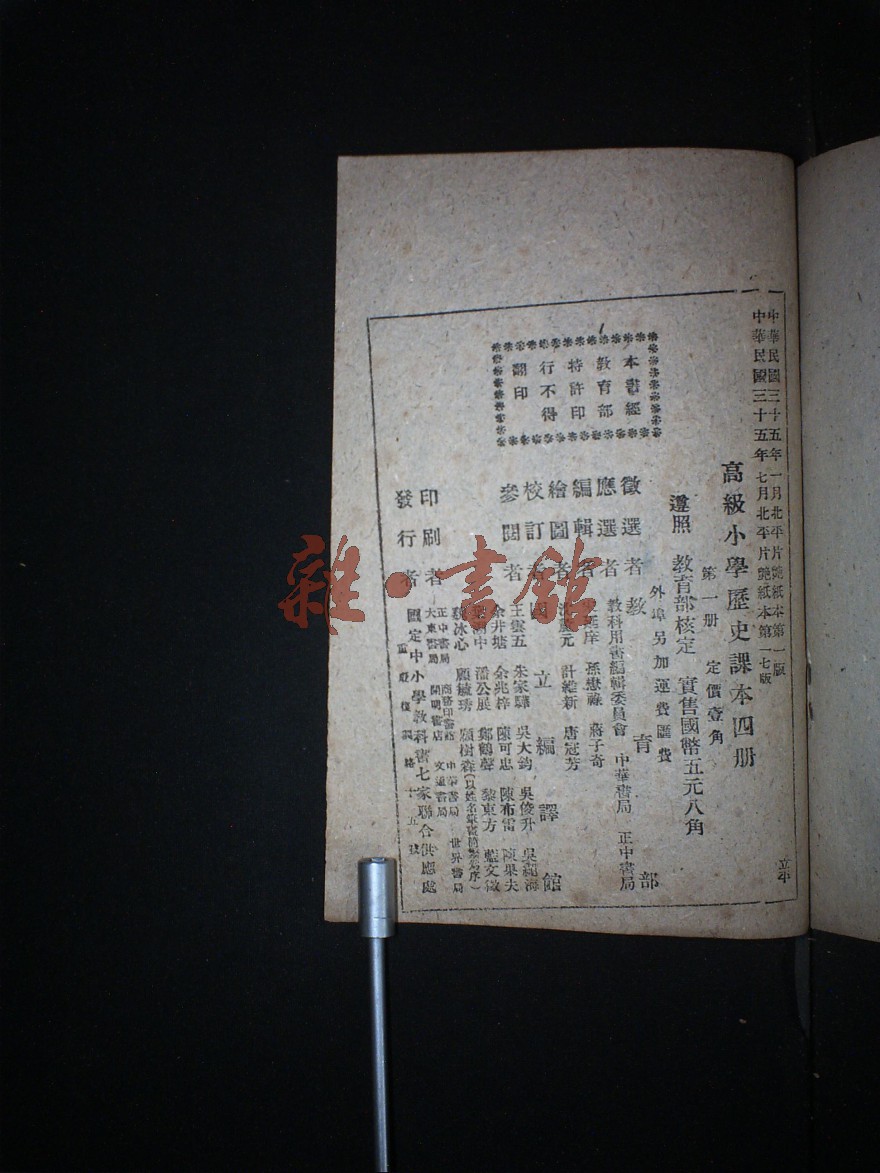 中華民國三十五年一月北平片艶紙本第一版
中華民國三十五年七月北平片艶紙本第一七版
高級小學歷史課本四册
第一册 定價壹角
遵照 教育部核定 實售國幣五元八角
外埠另加運費匯費
本書經
教育部
特許印
行不得
翻印
徵選者 教育部
應選者 教科用書編輯委員會 中華書局 正中書局
編輯者 孫懋祿 蔣子奇
繪圖者 計維新 唐冠芳
校訂者 國立編譯館
參閱者 王雲五 朱家驊 吳大鈞 吳俊升 吳
余井塘 余兆梓 陳可忠 陳布雷 陳果夫
潘公展 鄭鶴聲 黎東方 藍文徵
冰心 顧毓琇 顧樹森(以姓名筆畫簡繁為序)
印刷者 正中書局 商務印書館 中華書局 世界書局
大東書局 開明書店 文通書局
發行者 國定中小學教科書七家聯合供應處
路十五號
立平
雜·書館